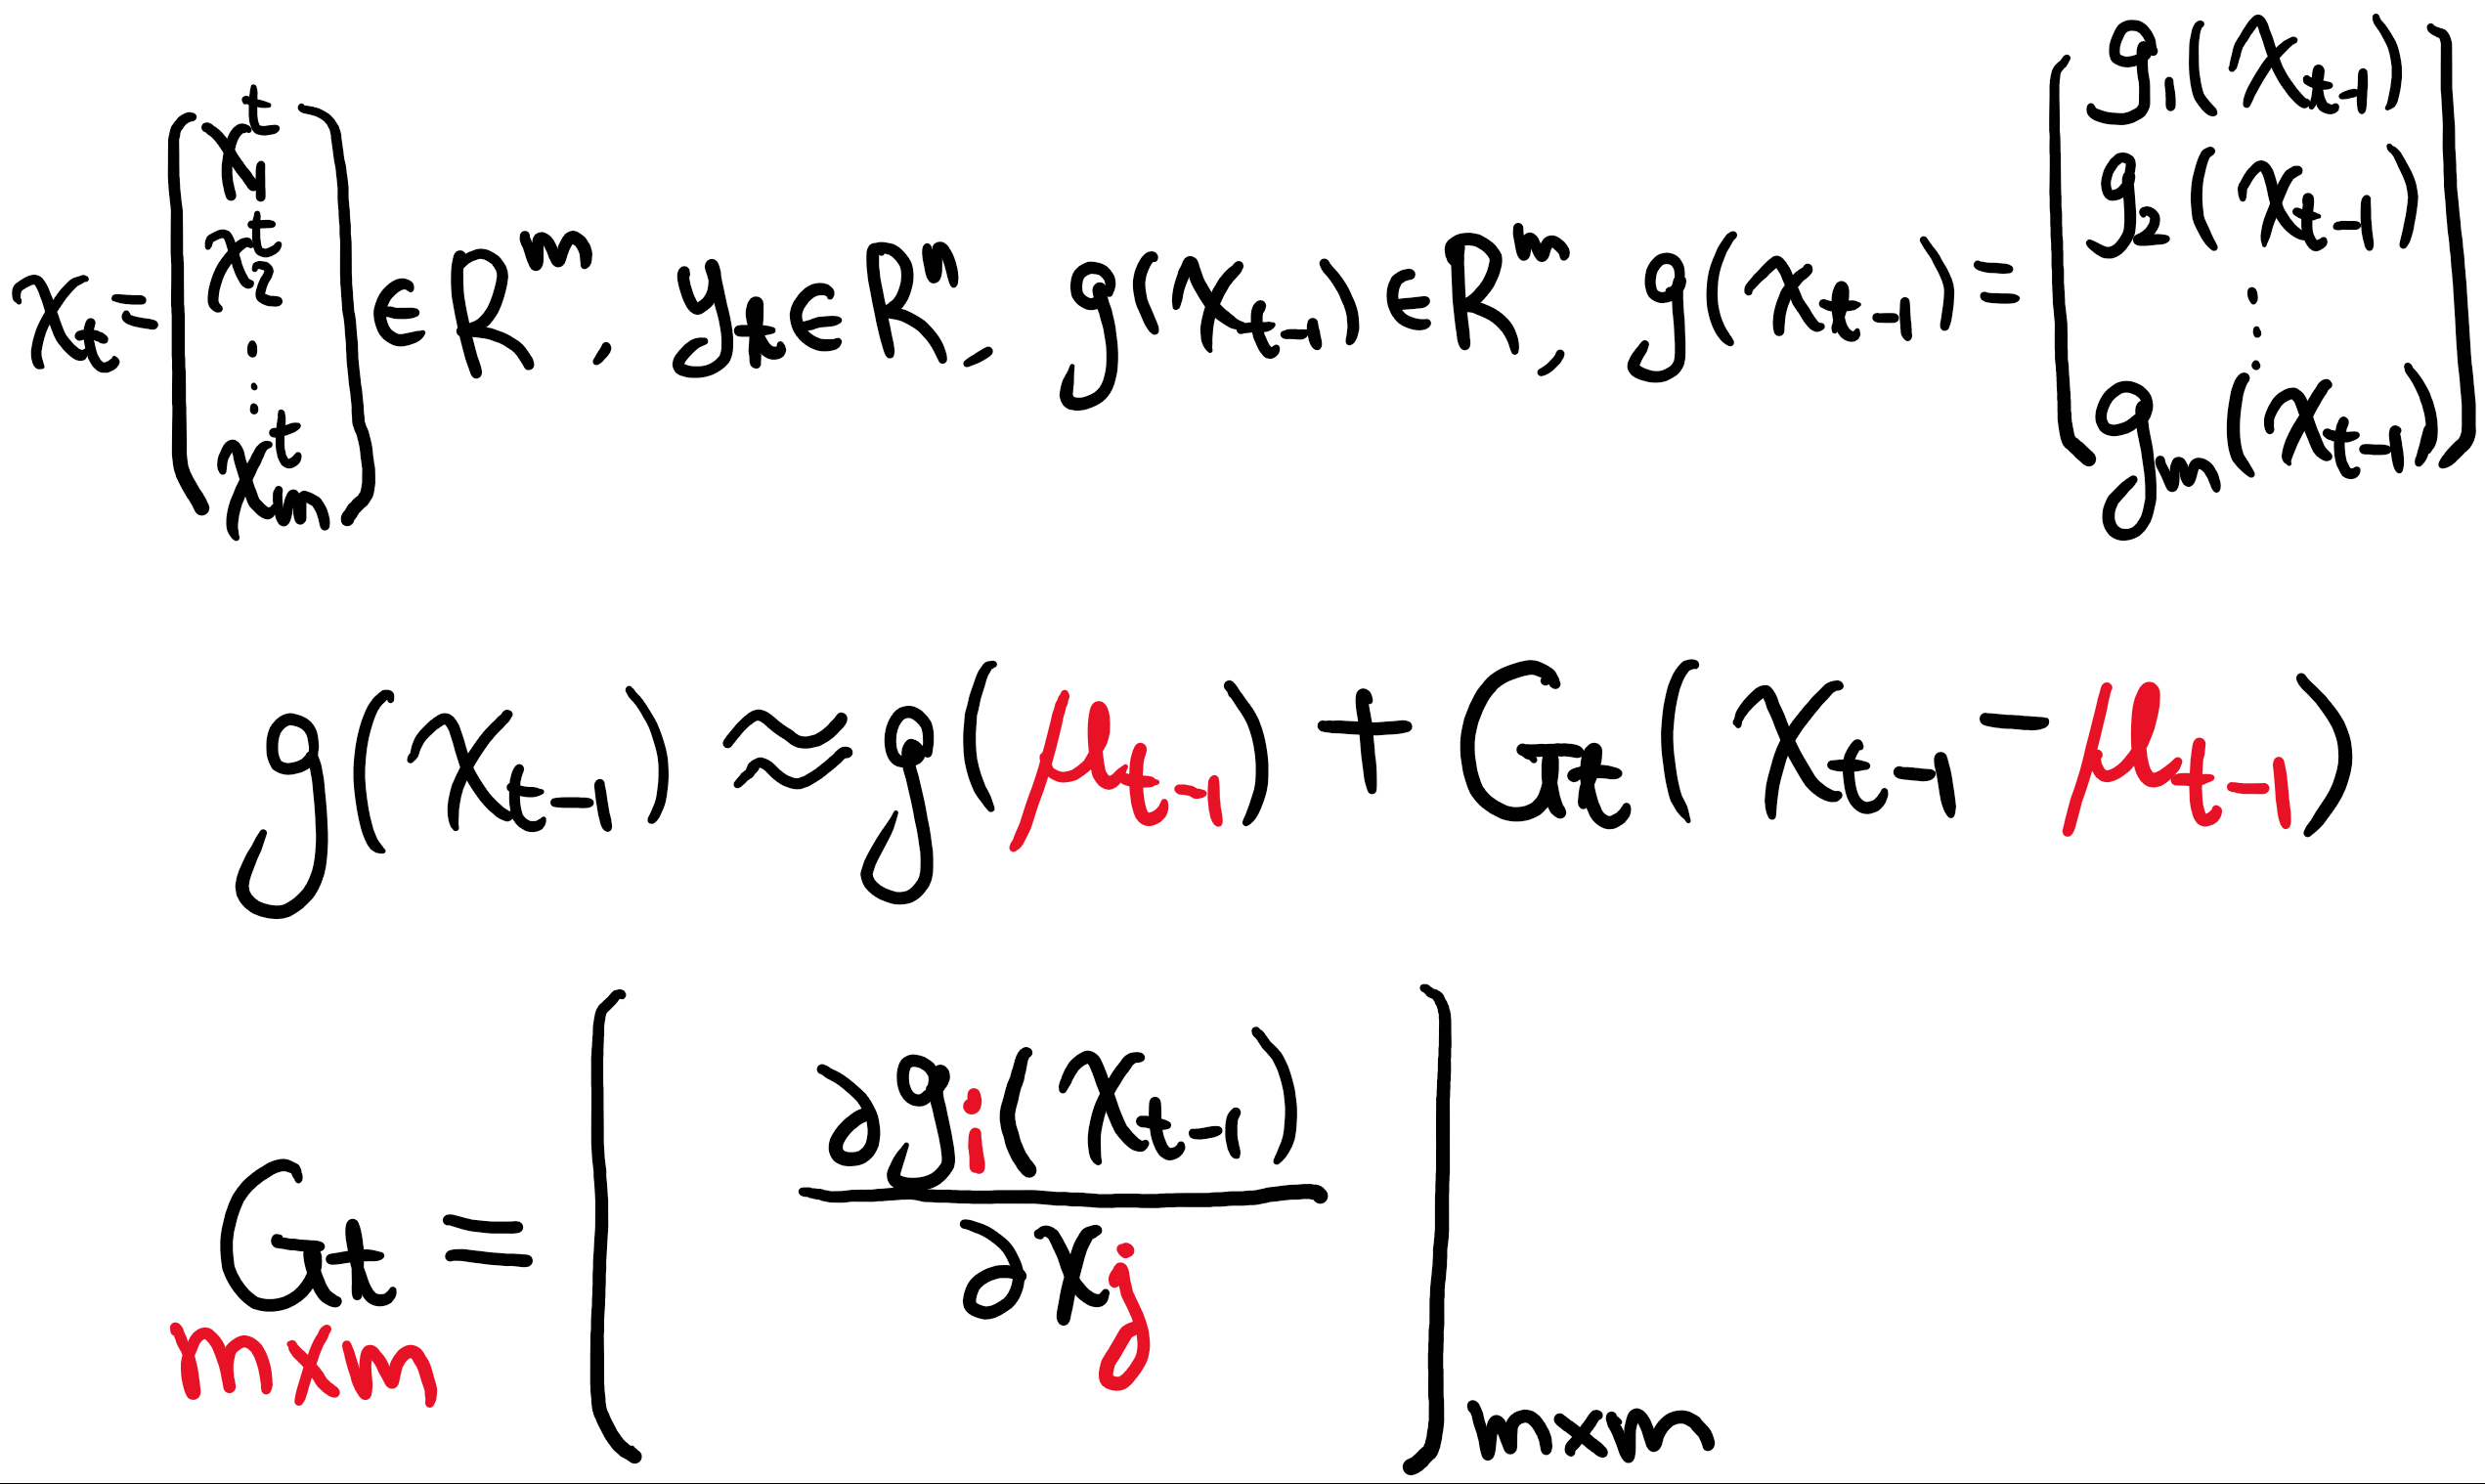 x_t = [x_1^t x_2^t ⋮ x_m^t] ∈ R^m, y_t ∈ R^n, g(x_{t-1}) ∈ R^m, g(x_{t-1}) = [g_1(x_{t-1}) g_2(x_{t-1}) ⋮ g_m(x_{t-1})]
g(x_{t-1}) ≈ g(μ_{t-1}) + G_t(x_{t-1} - μ_{t-1})
G_t = [∂g_i(x_{t-1}) / ∂x_j]_{m×m}
m×m